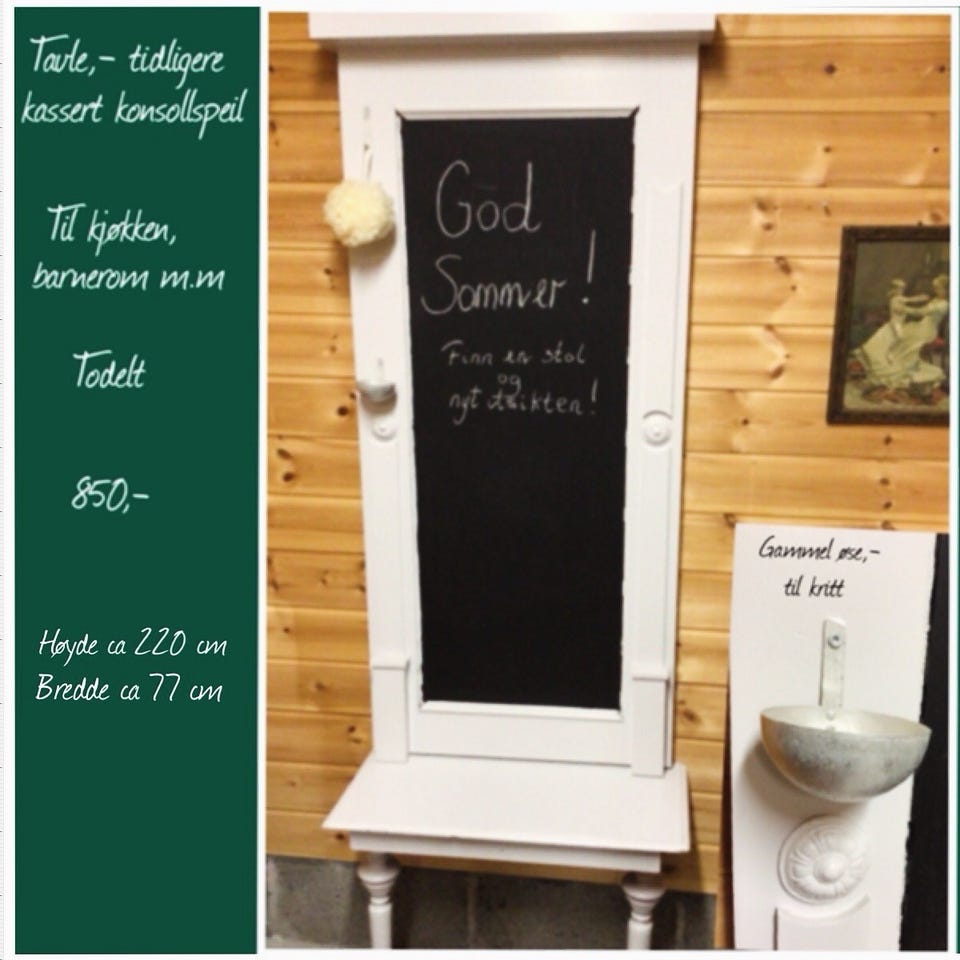 Tavle,- tidligere
kassert konsollspeil
Til kjøkken,
barnerom m.m
Todelt
850,-
Høyde ca 220 cm
Bredde ca 77 cm
God
Sommer!
Finn en stol
og
nyt utsikten!
Gammel øse,-
til kritt